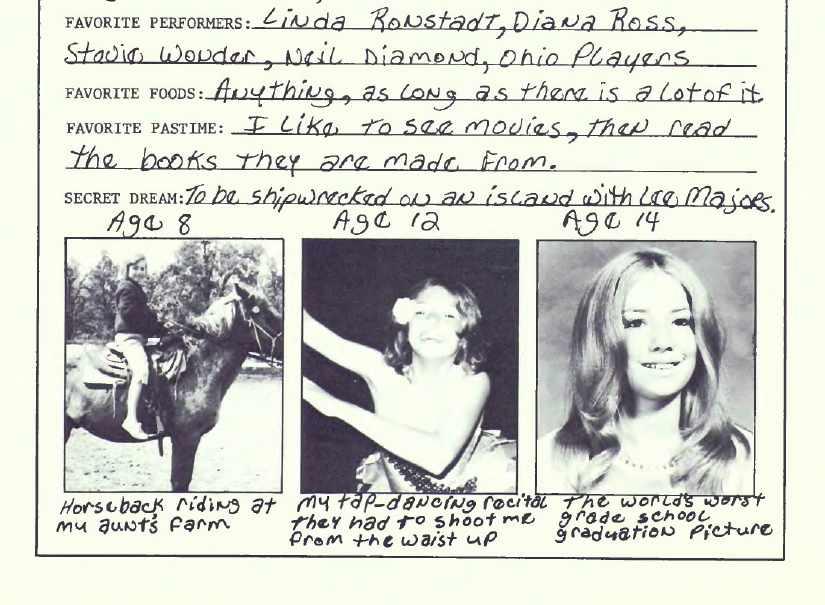 FAVORITE PERFORMERS: Linda Ronstadt, Diana Ross,
Stevie Wonder, Neil Diamond, Ohio Players
FAVORITE FOODS: Anything, as long as there is a lot of it.
FAVORITE PASTIME: I like to see movies, then read
the books they are made from.
SECRET DREAM: To be shipwrecked on an island with Lee Majors.
Age 8 Age 12 Age 14
Horseback riding at
my aunt's farm
my tap-dancing recital
they had to shoot me
from the waist up
the world's worst
grade school
graduation picture